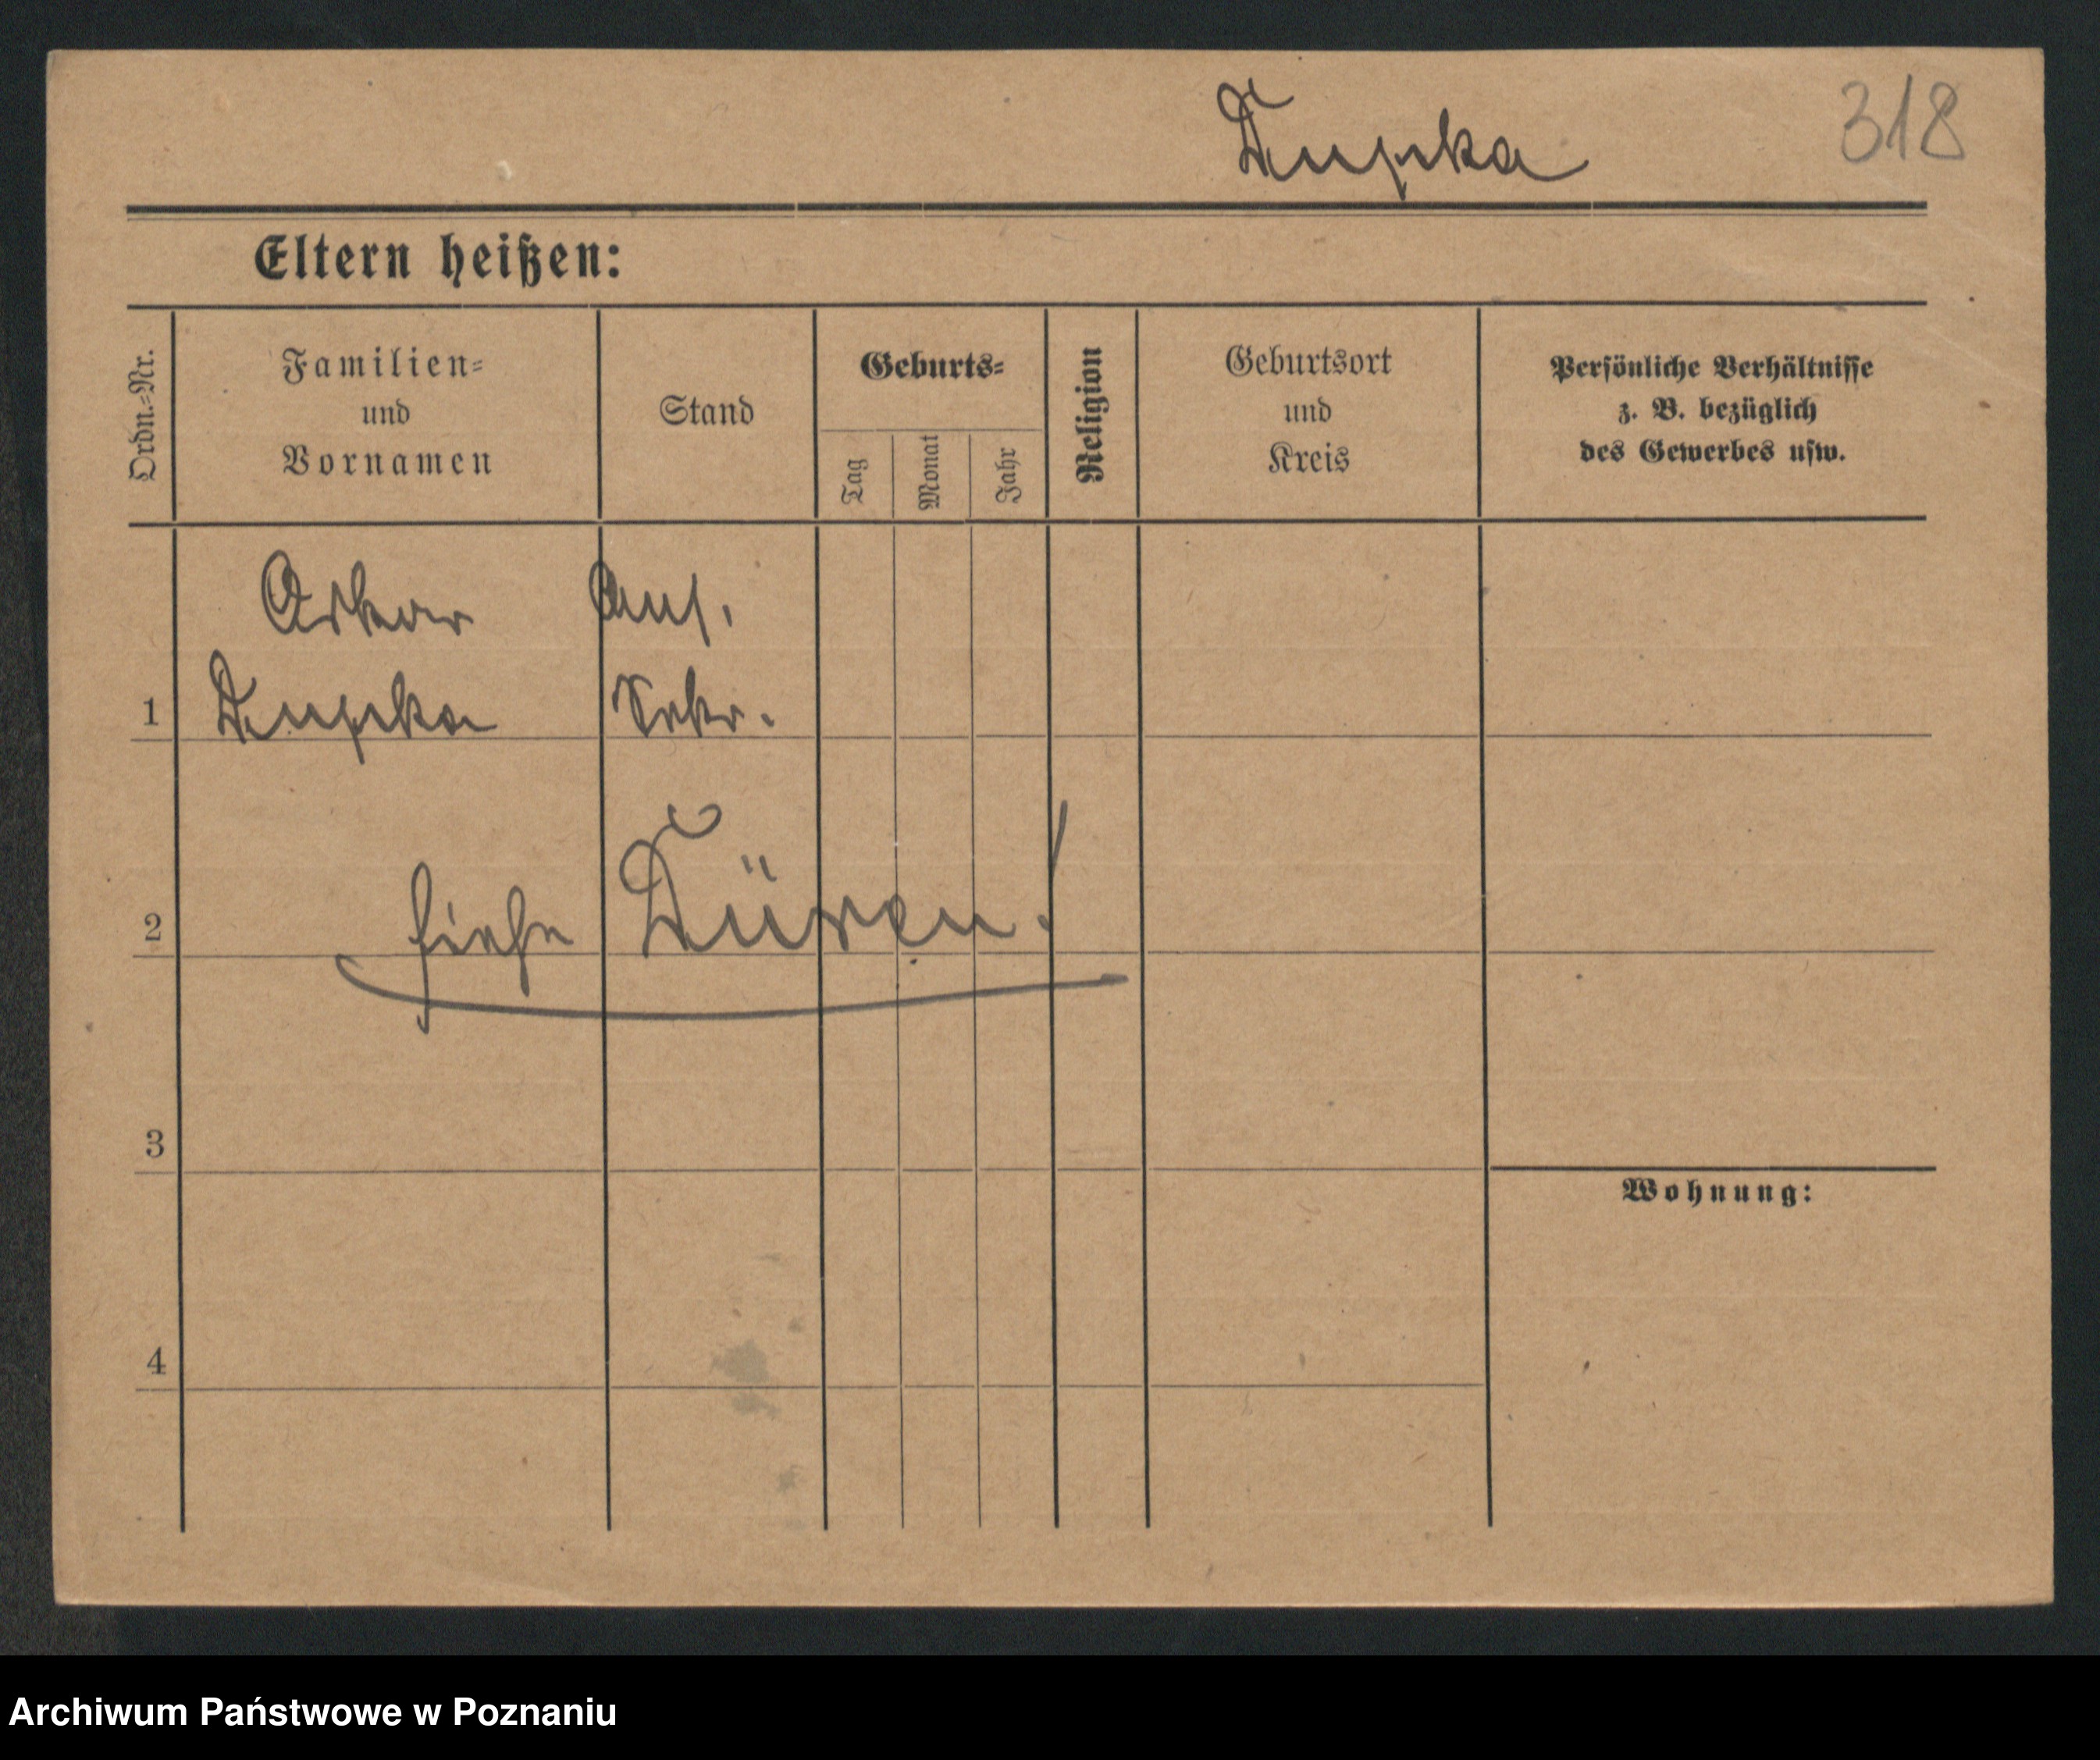 Dupka 318
Eltern heißen:
Ordn.-Nr.
Familien-
und
Vornamen
Stand
Geburts-
Tag
Monat
Jahr
Religion
Geburtsort
und
Kreis
Persönliche Verhältnisse
z. B. bezüglich
des Gewerbes usw.
Oskar
1 Dupka Sekr.
2 siehe Düren!
3
Wohnung:
4
Archiwum Państwowe w Poznaniu